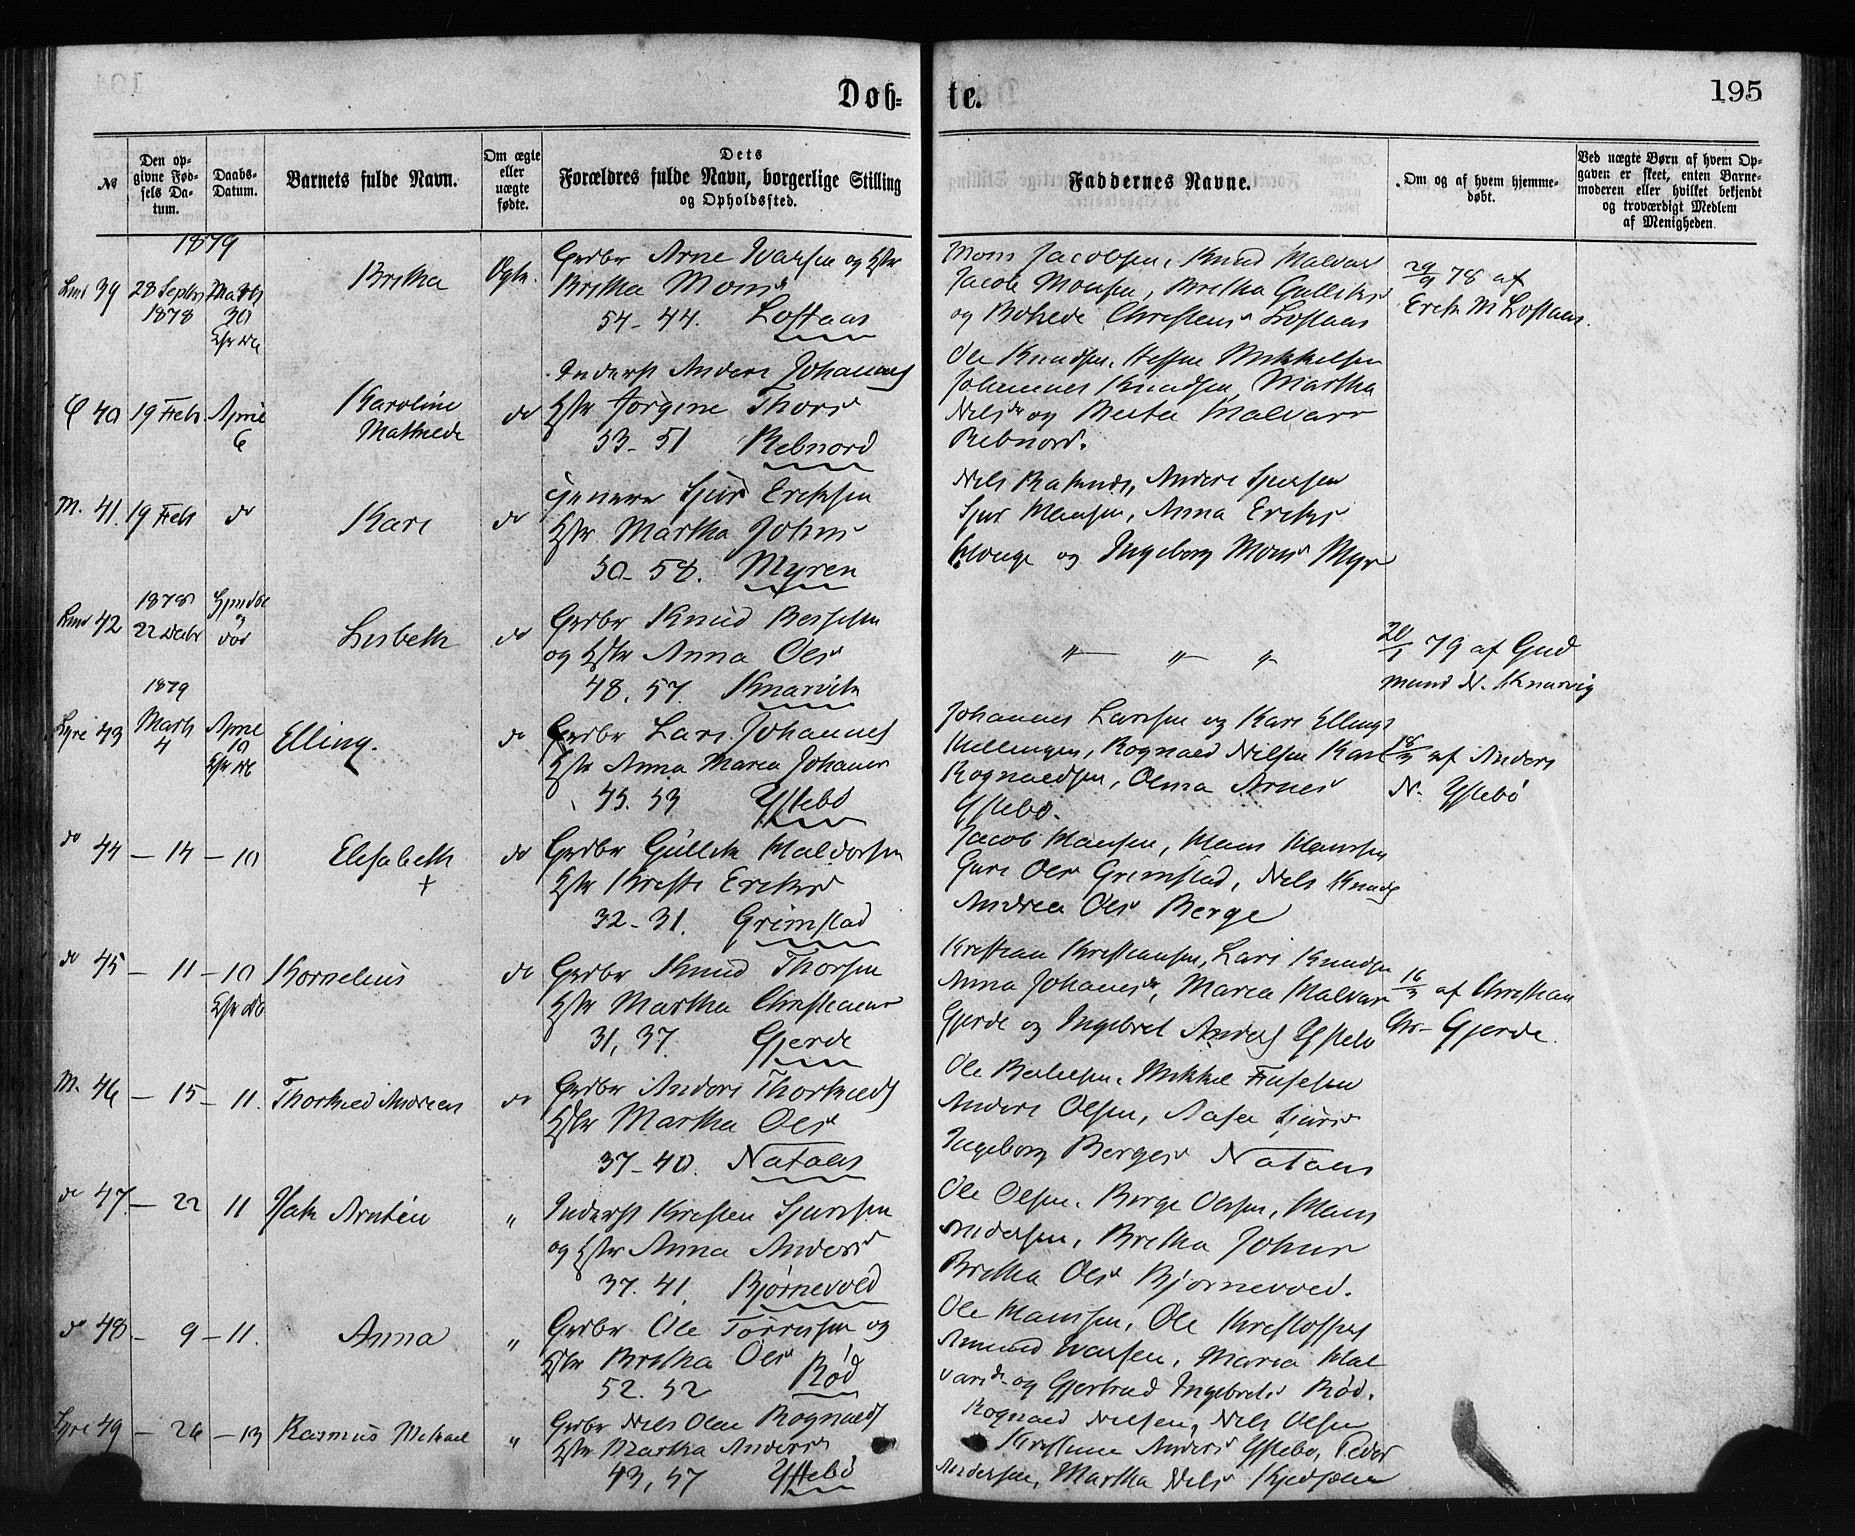 Døb-
te.
195
№
Den op-
givne Fød-
sels Da-
tum.
Daabs-
Datum.
Barnets fulde Navn.
Om ægte
eller
uægte
fødte.
Dets
Forældres fulde Navn, borgerlige Stilling
og Opholdssted.
Faddernes Navne.
Om og af hvem hjemme-
døbt.
Ved uægte Børn af hvem Op-
gaven er skeet, enten Barne-
moderen eller hvilket bekjendt
og troværdigt Medlem
af Menigheden.
1879
39 28 Septbr 1878
Marts 30
Britha
Ægte.
Grdbr Arne Ivarsen og Hstr
Britha Monsd
54-44. Loftaas
Mons Jacobsen, Knud Halvars
Jacob Monsen, Britha Gulliksd
og Christensd Loftaas
29/9 78 af
Erik M Loftaas.
40 19 Feb. April 6
Karoline
Mathilde
do
Inderst Anders Johannes
Hstr Jørgine Thorsd
53-51 Rebnord
Ole Knudsen, Steffen Mikkelsen
Johannes Knudsen, Martha
Nelsdr og Berta Halvars
Rebnord.
M. 41. 19 Feb do
Kari
do
Sjur Eriksen
Hstr Martha Johns
50-58. Myren
Nils Anders Sjursen
Sjur Monsen, Anna Eriks
og Ingeborg Monsd Myr
42 1878 22 Decbr
Lisbeth
do
Grdbr Knud
og Hstr Anna Olsd
48. 57. Knarvik
20/1 79 af Gud
mund N. Knarvig
43 1879 Marts 4 April 10
Elling.
do
Grdbr Lars Johannes
Hstr Anna Maria Johans
45. 53 Ystebø
Johannes Larsen og Kari Ellingsd
Rognald Nilsen Kari
Rognaldsen, Olina Arnesd
Ystebø.
18/3 af Anders
N. Ystebø
do 44 – 14 – 10
Elisabeth
+
do
Grdbr Gullik Haldorsen
Hstr Kristi Eriksd
32-31. Grimstad
Jacob Hansen, Mons Hansen
Guri Olsd Grimstad, Nils Knuds
Andrea Olsd Berge
do 45 – 11 – 10
Kornelius
do
Grdbr Knud Thorsen
Hstr Martha Christians
31, 37. Gjerde
Kristian Kristiansen, Lars Knudsen
Anna Johansdr, Maria Halvar
Gjerde og Ingebret Anders Ystebø
16/3 af Christian
Chr- Gjerde.
M. 46 – 15 – 11.
Thorkild Andreas
do
Grdbr Anders Thorkilds
Hstr Martha Olsd
37-40. Nataas
Ole Mikkel
Anders Olsen, Aasa Sjursd
Ingeborg Bergesd Nataas
do 47 – 22 11
"
Inderst Kristen Sjursen
og Hstr Anna Andersd
37. 41. Bjørnevold
Ole Olsen, Berge Olsen, Mons
Andersen, Britha Johns
Britha Olsd Bjørnevold.
do 48 – 9 – 11.
Anna
"
Grdbr Ole Tørrisen og
Hstr Britha Olsd
52. 52 Rød
Ole Hansen, Ole Kristoffers
Amund Ivarsen, Maria Hal
varsdr og Gjertrud Ingebretsd Rød.
49 – 26 – 13
Rasmus Mikael
"
Grdbr Nils Olai Rognalds
Hstr Martha Andersd
43, 37 Ystebø
Rognald Nilsen, Nils Olsen
Kristine Andersd Ystebø, Peder
Andersen, Martha Nilsd